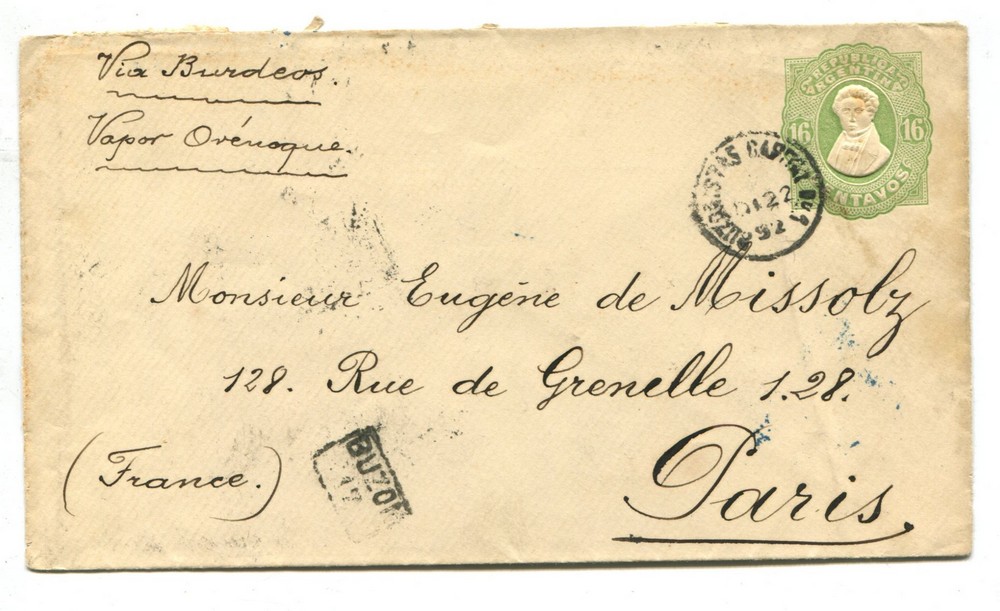 Via Burdeos.
Vapor Orénoque
REPUBLICA
ARGENTINA
16 16
CENTAVOS
BUZONISTAS CAPITAL Nº 1
DI 22
92
Monsieur Eugéne de Missolz
128. Rue de Grenelle 1.28.
(France.)
BUZON
Paris.